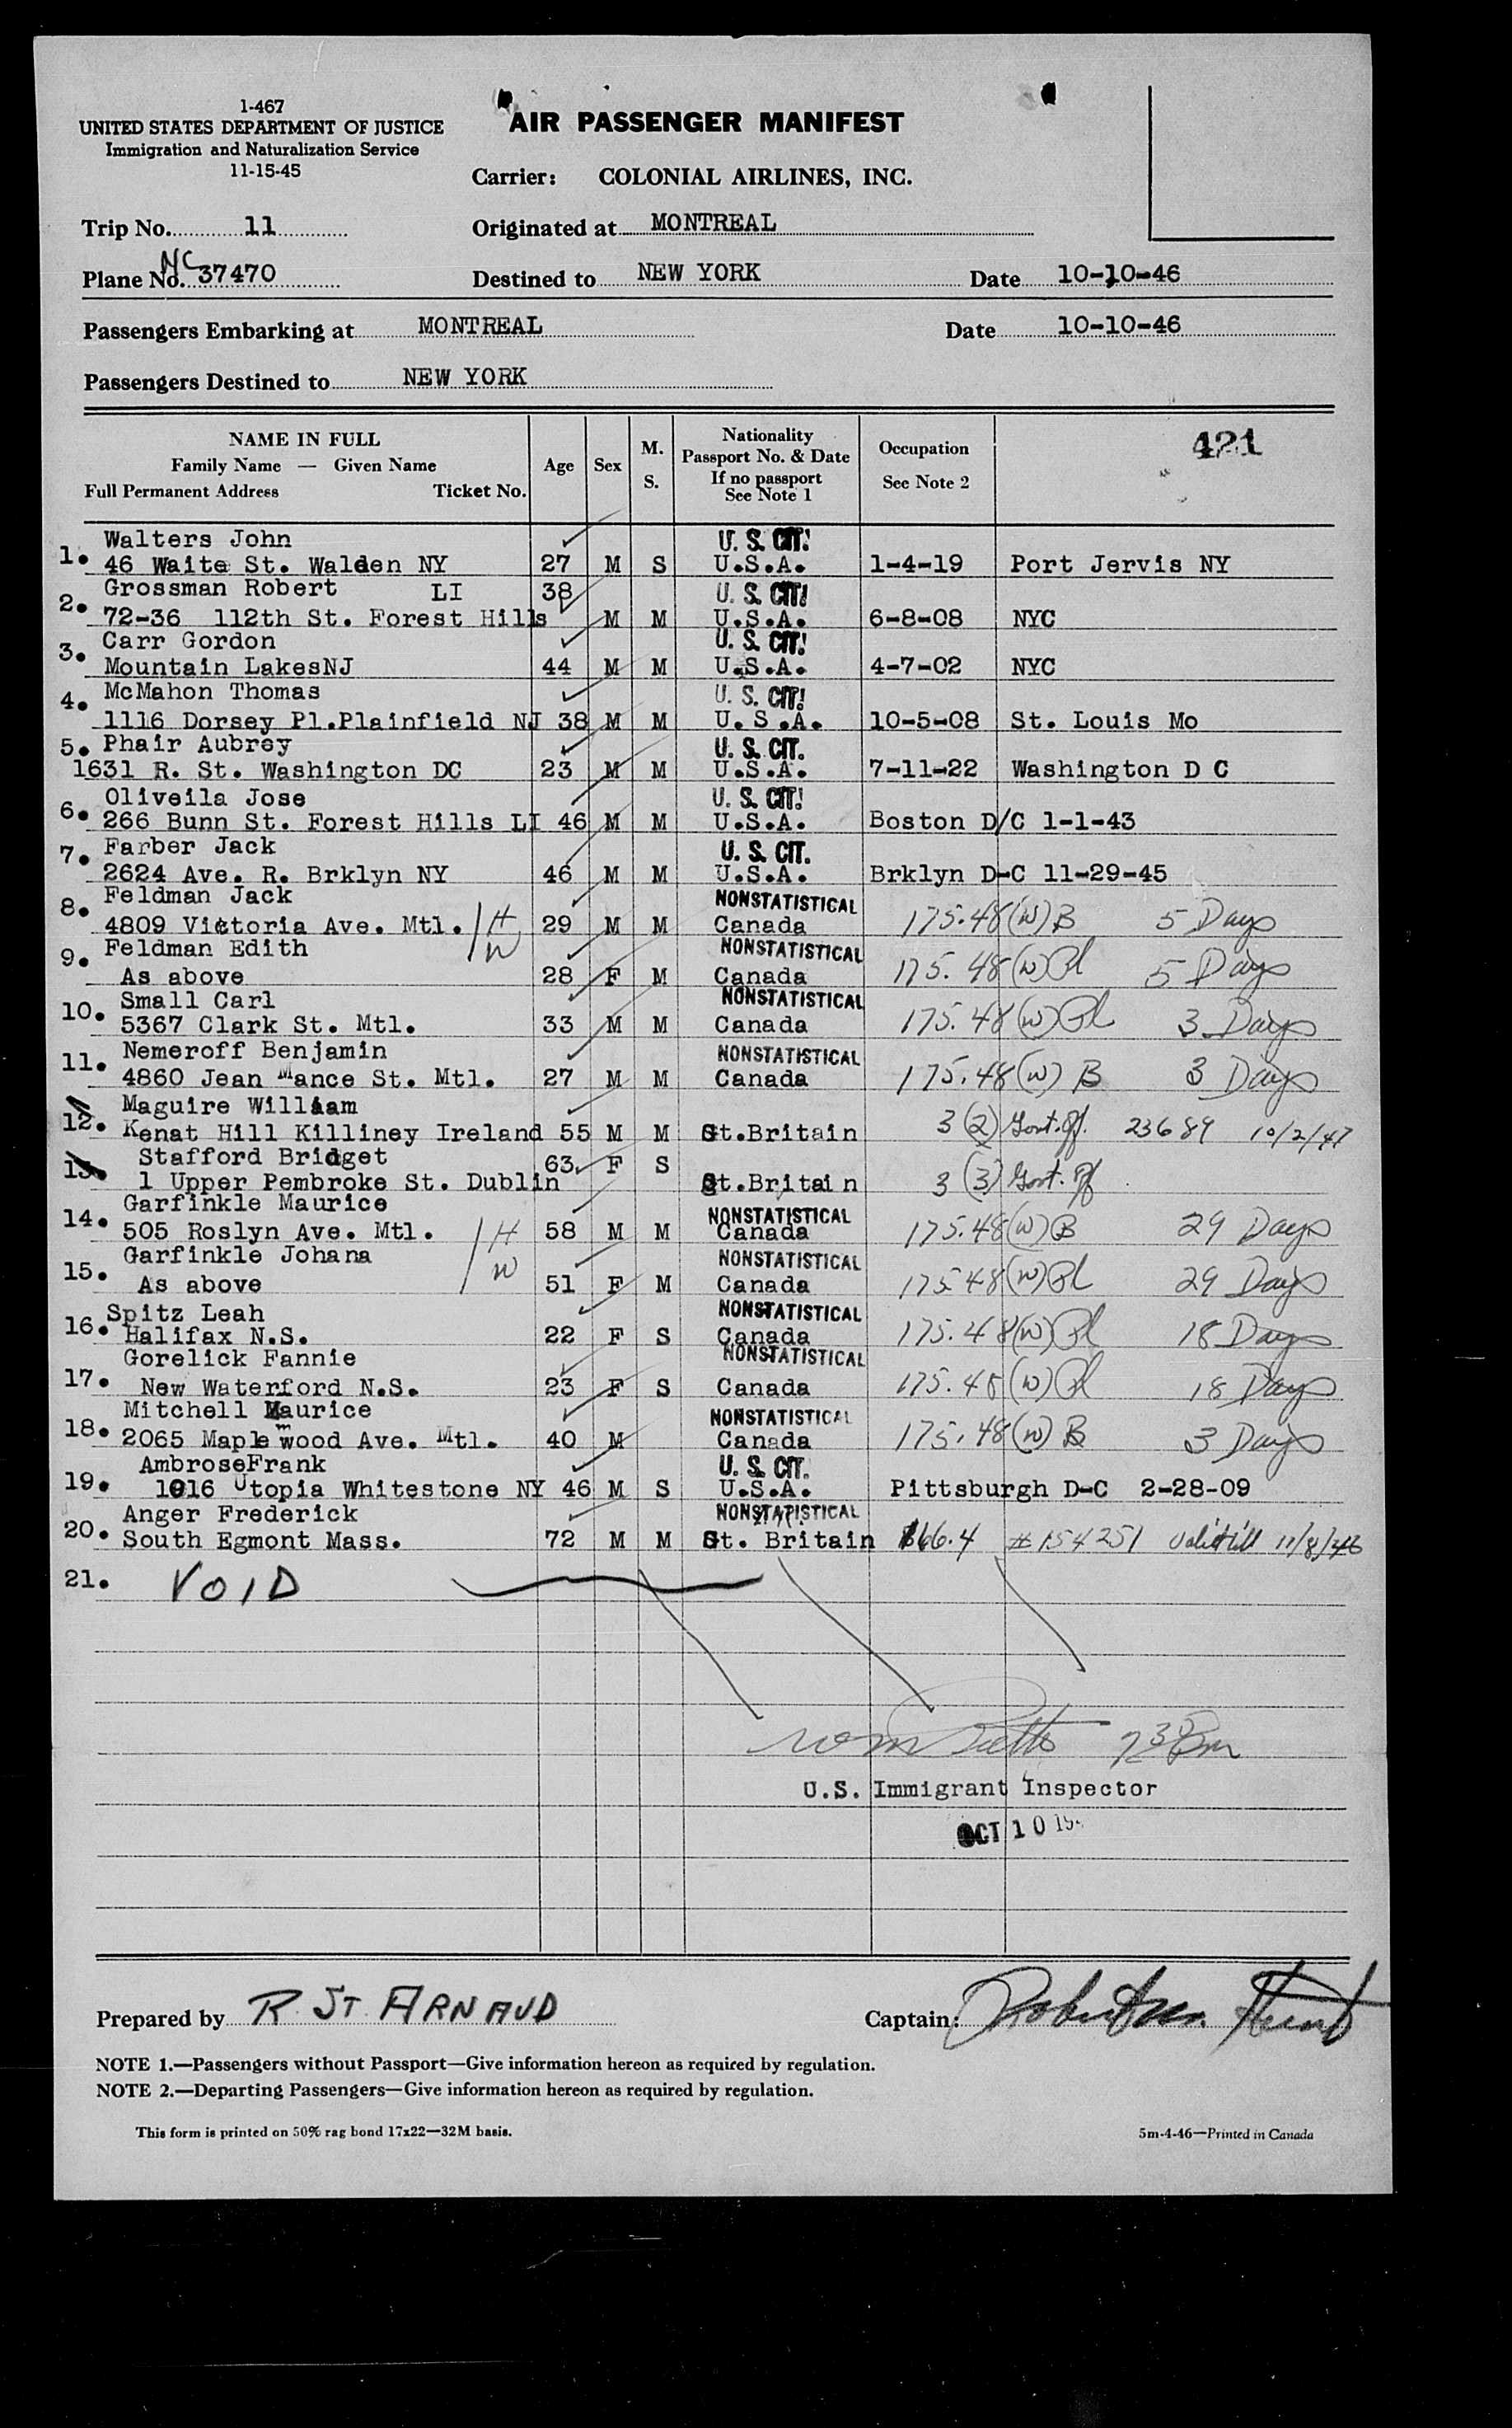 1-467
UNITED STATES DEPARTMENT OF JUSTICE
Immigration and Naturalization Service
11-15-45
AIR PASSENGER MANIFEST
Carrier: COLONIAL AIRLINES, INC.
Trip No. 11 Originated at MONTREAL
Plane No. NC 37470 Destined to NEW YORK Date 10-10-46
Passengers Embarking at MONTREAL Date 10-10-46
Passengers Destined to NEW YORK
NAME IN FULL
Family Name — Given Name
Full Permanent Address Ticket No.
Age Sex M. S.
Nationality
Passport No. & Date
If no passport
See Note 1
Occupation
See Note 2
421
Walters John U. S. CIT.
1. 46 Waite St. Walden NY 27 M S U.S.A. 1-4-19 Port Jervis NY
Grossman Robert LI 38 U. S. CIT.
2. 72-36 112th St. Forest Hills M M U.S.A. 6-8-08 NYC
Carr Gordon U. S. CIT.
3. Mountain LakesNJ 44 M M U.S.A. 4-7-02 NYC
McMahon Thomas U. S. CIT.
4. 1116 Dorsey Pl.Plainfield NJ 38 M M U.S.A. 10-5-08 St. Louis Mo
5. Phair Aubrey U. S. CIT.
1631 R. St. Washington DC 23 M M U.S.A. 7-11-22 Washington D C
Oliveila Jose U. S. CIT.
6. 266 Bunn St. Forest Hills LI 46 M M U.S.A. Boston D/C 1-1-43
Farber Jack U. S. CIT.
7. 2624 Ave. R. Brklyn NY 46 M M U.S.A. Brklyn D-C 11-29-45
Feldman Jack NONSTATISTICAL
8. 4809 Victoria Ave. Mtl. H 29 M M Canada 175.48(W)B 5 Days
Feldman Edith W NONSTATISTICAL
9. As above 28 F M Canada 175.48(W)Pl 5 Days
Small Carl NONSTATISTICAL
10. 5367 Clark St. Mtl. 33 M M Canada 175.48(W)Pl 3 Days
Nemeroff Benjamin NONSTATISTICAL
11. 4860 Jean Mance St. Mtl. 27 M M Canada 175.48(W) B 3 Days
Maguire William
12. Kenat Hill Killiney Ireland 55 M M Gt.Britain 3(2) Govt. Of. 23689 10/2/47
Stafford Bridget
13. 1 Upper Pembroke St. Dublin 63 F S Gt.Britain 3(3) Govt. Of
Garfinkle Maurice NONSTATISTICAL
14. 505 Roslyn Ave. Mtl. H 58 M M Canada 175.48(W)B 29 Days
Garfinkle Johana W NONSTATISTICAL
15. As above 51 F M Canada 175.48(W)Pl 29 Days
Spitz Leah NONSTATISTICAL
16. Halifax N.S. 22 F S Canada 175.48(W)Pl 18 Days
Gorelick Fannie NONSTATISTICAL
17. New Waterford N.S. 23 F S Canada 175.48(W)Pl 18 Days
Mitchell Maurice NONSTATISTICAL
18. 2065 Maplewood Ave. Mtl. 40 M Canada 175.48(W) B 3 Days
AmbroseFrank U. S. CIT.
19. 1016 Utopia Whitestone NY 46 M S U.S.A. Pittsburgh D-C 2-28-09
Anger Frederick NONSTATISTICAL
20. South Egmont Mass. 72 M M Gt. Britain 166.4 #154251 Valid till 11/8/46
21. VOID
7 30 Pm
U.S. Immigrant Inspector
OCT 10 194
Prepared by R. ST. ARNAUD Captain:
NOTE 1.—Passengers without Passport—Give information hereon as required by regulation.
NOTE 2.—Departing Passengers—Give information hereon as required by regulation.
This form is printed on 50% rag bond 17x22—32M basis. 5m-4-46—Printed in Canada